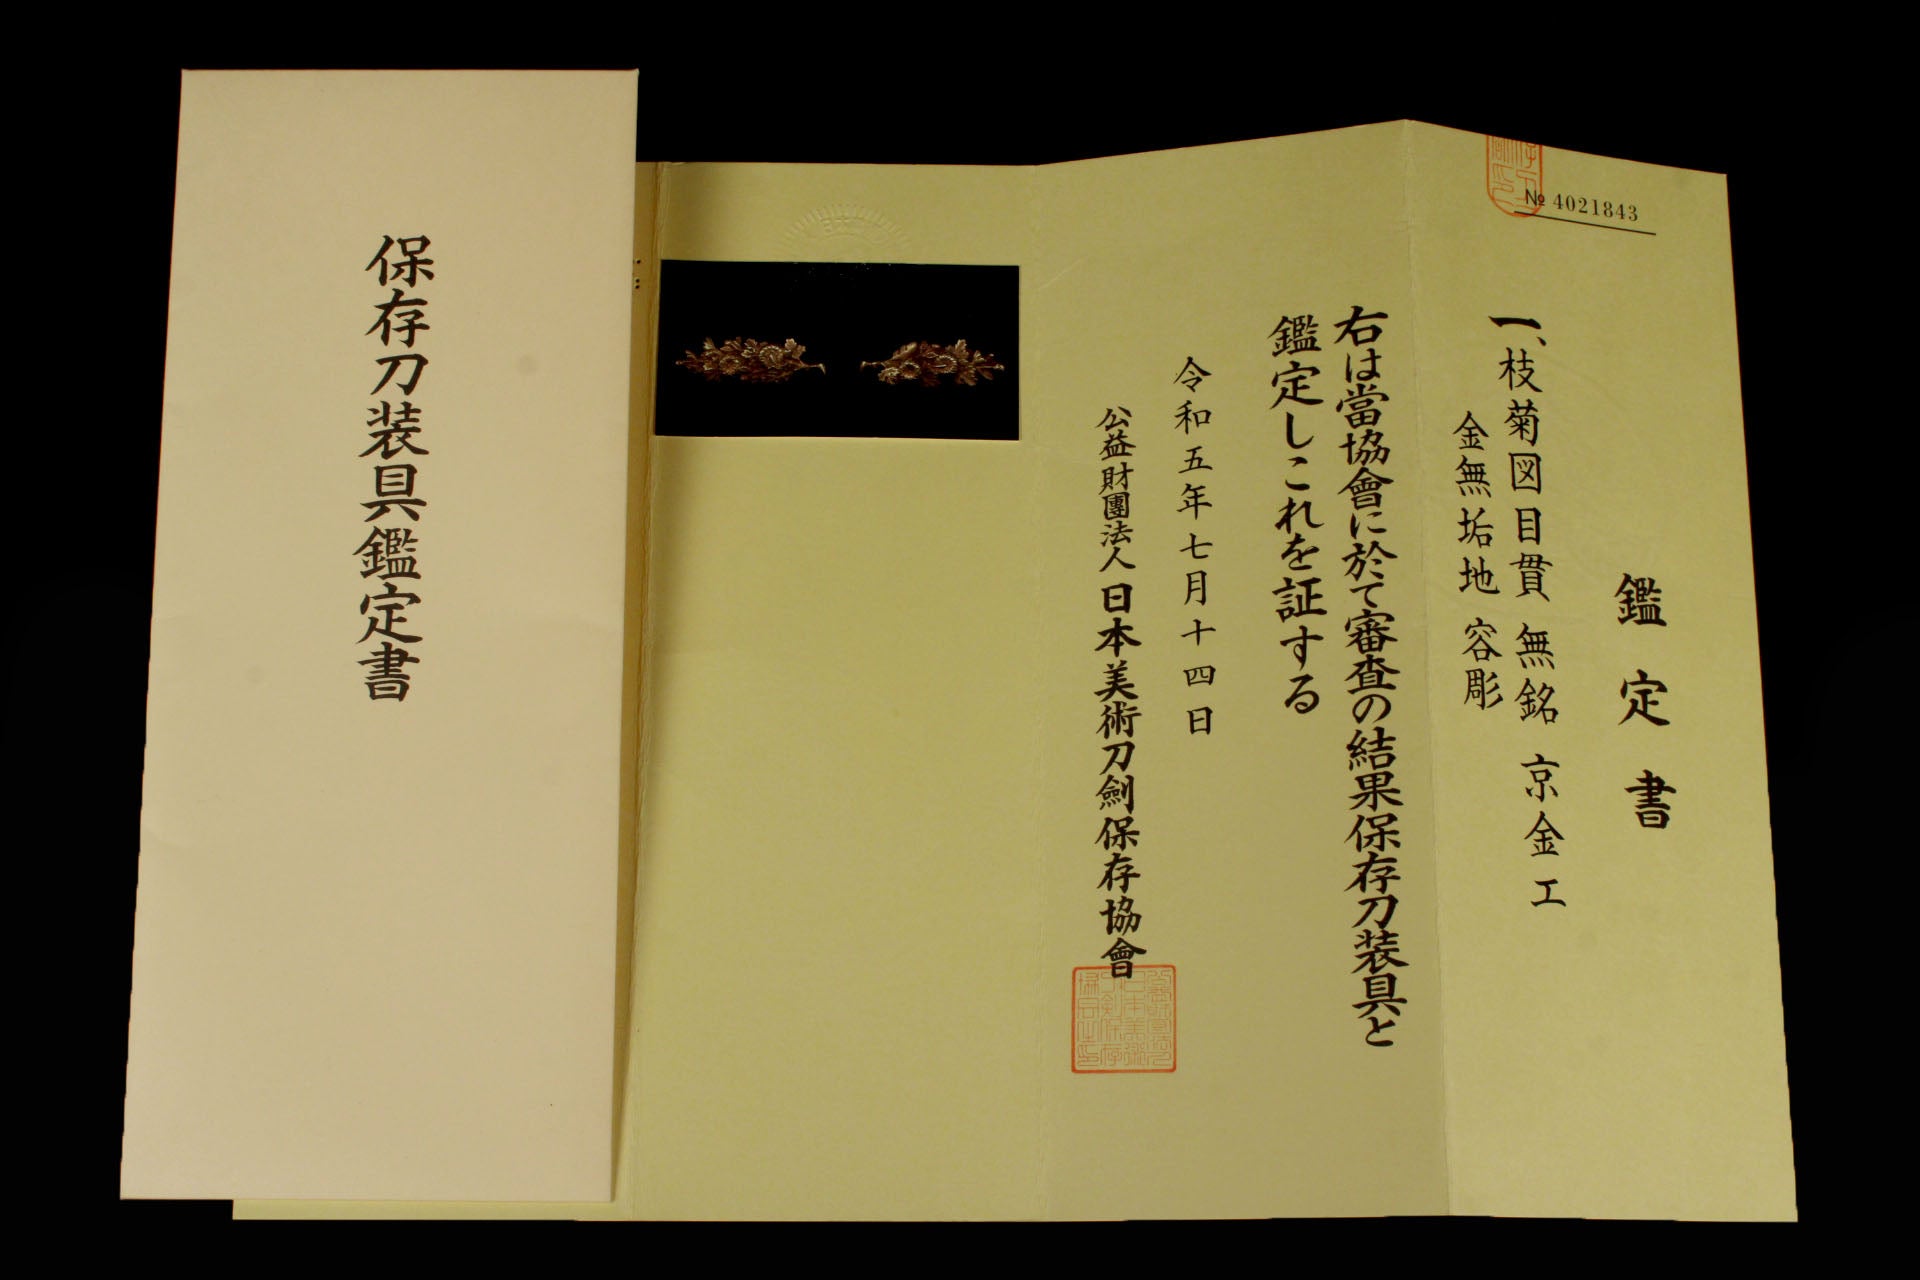 保存刀装具鑑定書
№ 4021843
鑑定書
一、枝菊図目貫 無銘 京金工
金無垢地 容彫
右は當協會に於て審査の結果保存刀装具と
鑑定しこれを証する
令和五年七月十四日
公益財團法人 日本美術刀劍保存協會